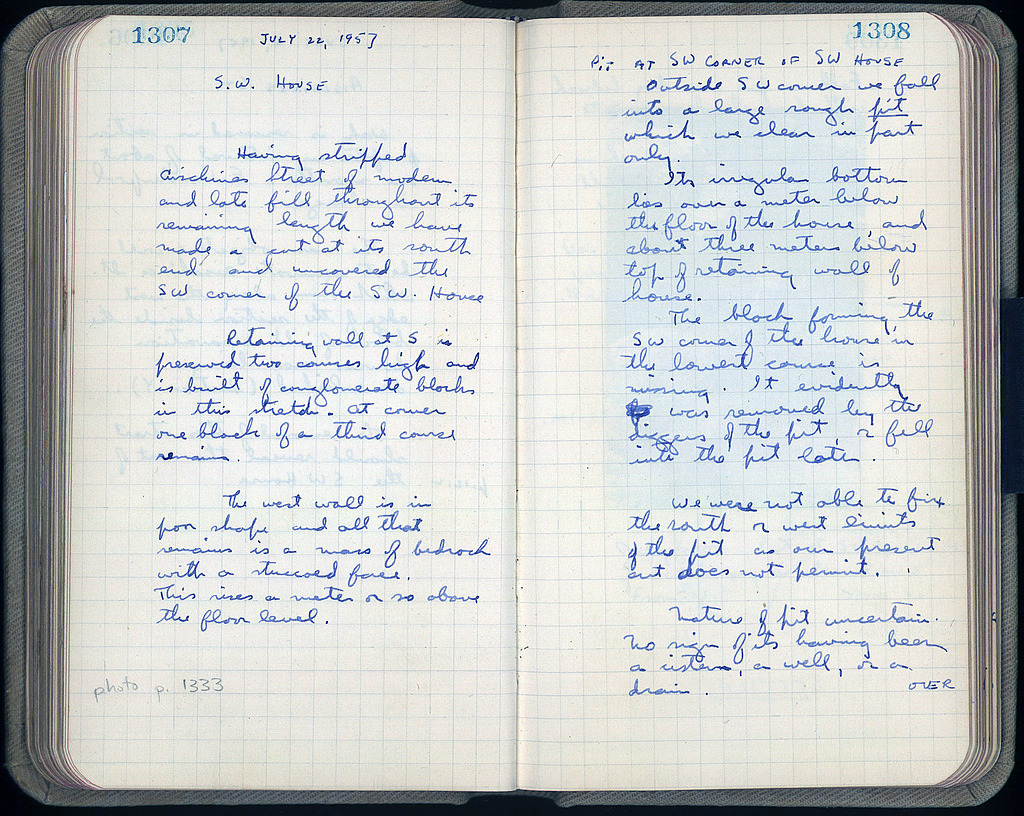 1307
JULY 22, 1957
S.W. HOUSE
Having stripped
Aischines Street of modern
and late fill throughout its
remaining length we have
made a cut at its south
end and uncovered the
SW corner of the SW. House
Retaining wall at S is
preserved two courses high and
is built of conglomerate blocks
in this stretch. At corner
one block of a third course
remains.
The west wall is in
poor shape and all that
remains is a mass of bedrock
with a stuccoed face.
This rises a meter or so above
the floor level.
photo p. 1333
1308
Pit AT SW CORNER OF SW HOUSE
Outside SW corner we fall
into a large rough pit
which we clear in part
only.
Its irregular bottom
lies over a meter below
the floor of the house, and
about three meters below
top of retaining wall of
house.
The block forming the
SW corner of the house in
the lowest course is
missing. It evidently
was removed by the
diggers of the pit, or fell
into the pit later.
We were not able to fix
the south or west limits
of the pit as our present
cut does not permit.
Nature of pit uncertain.
No sign of its having been
a cistern, a well, or a
drain.
OVER